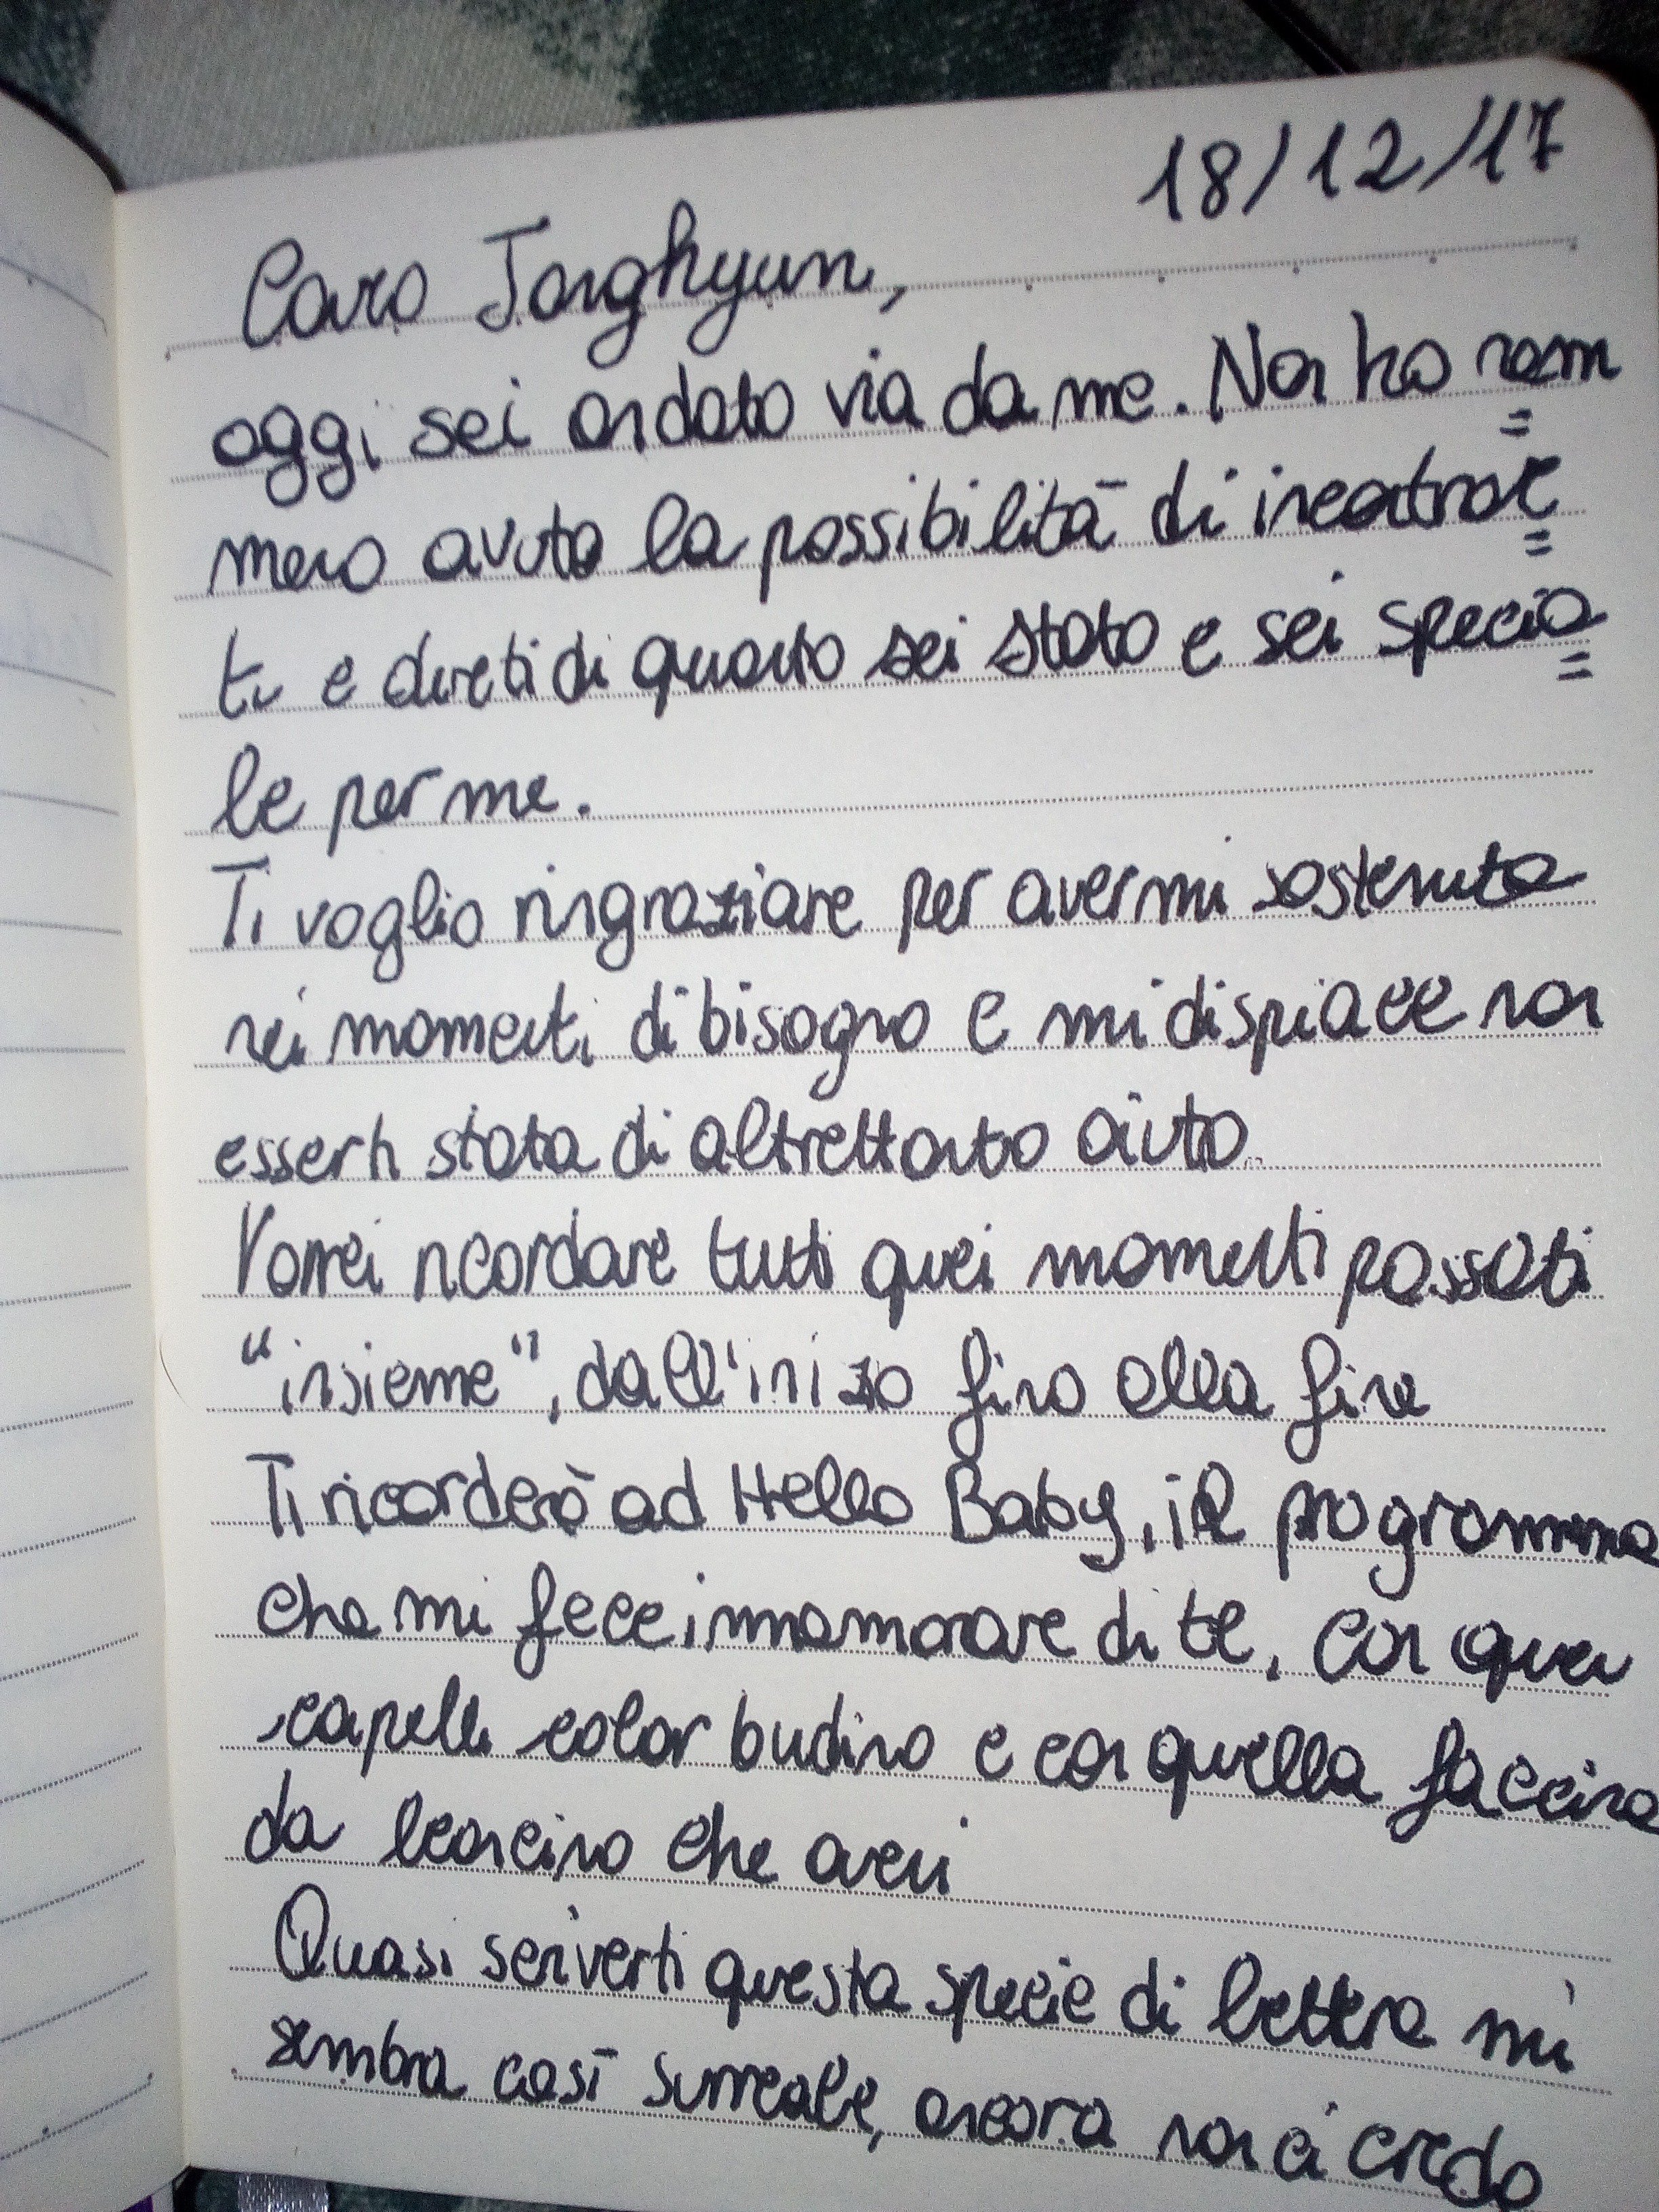 18/12/17
Caro Jonghyun,
oggi sei andato via da me. Non ho nem=
meno avuto la possibilità di incontrar=
ti e dirti di quanto sei stato e sei specia=
le per me.
Ti voglio ringraziare per avermi sostenuta
nei momenti di bisogno e mi dispiace non
esserti stata di altrettanto aiuto.
Vorrei ricordare tutti quei momenti passati
"insieme", dall'inizo fino alla fine
Ti ricorderò ad Hello Baby, il programma
che mi fece innamorare di te, con quei
capelli color budino e con quella faccina
da leoncino che avevi
Quasi scriverti questa specie di lettera mi
sembra così surreale, ancora non ci credo